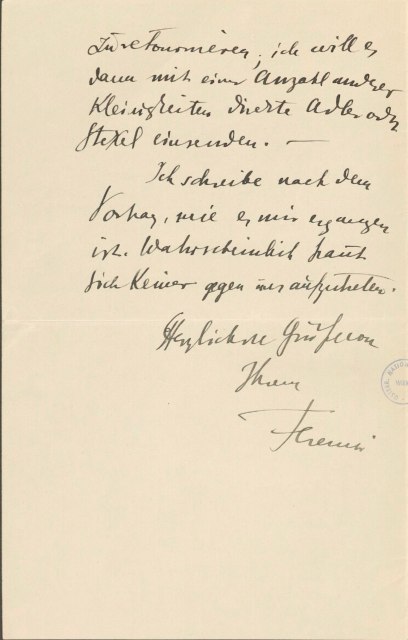 zu retournieren; ich will es
dann mit einer Anzahl andrer
Kleinigkeiten direkte Adler oder
Stekel einsenden. —
Ich schreibe nach dem
Vortrag, wie es mir ergangen
ist. Wahrscheinlich traut
sich Keiner gegen uns aufzutreten.
Herzlichste Grüsse von
Ihrem
Ferenczi
NATION
WIEN